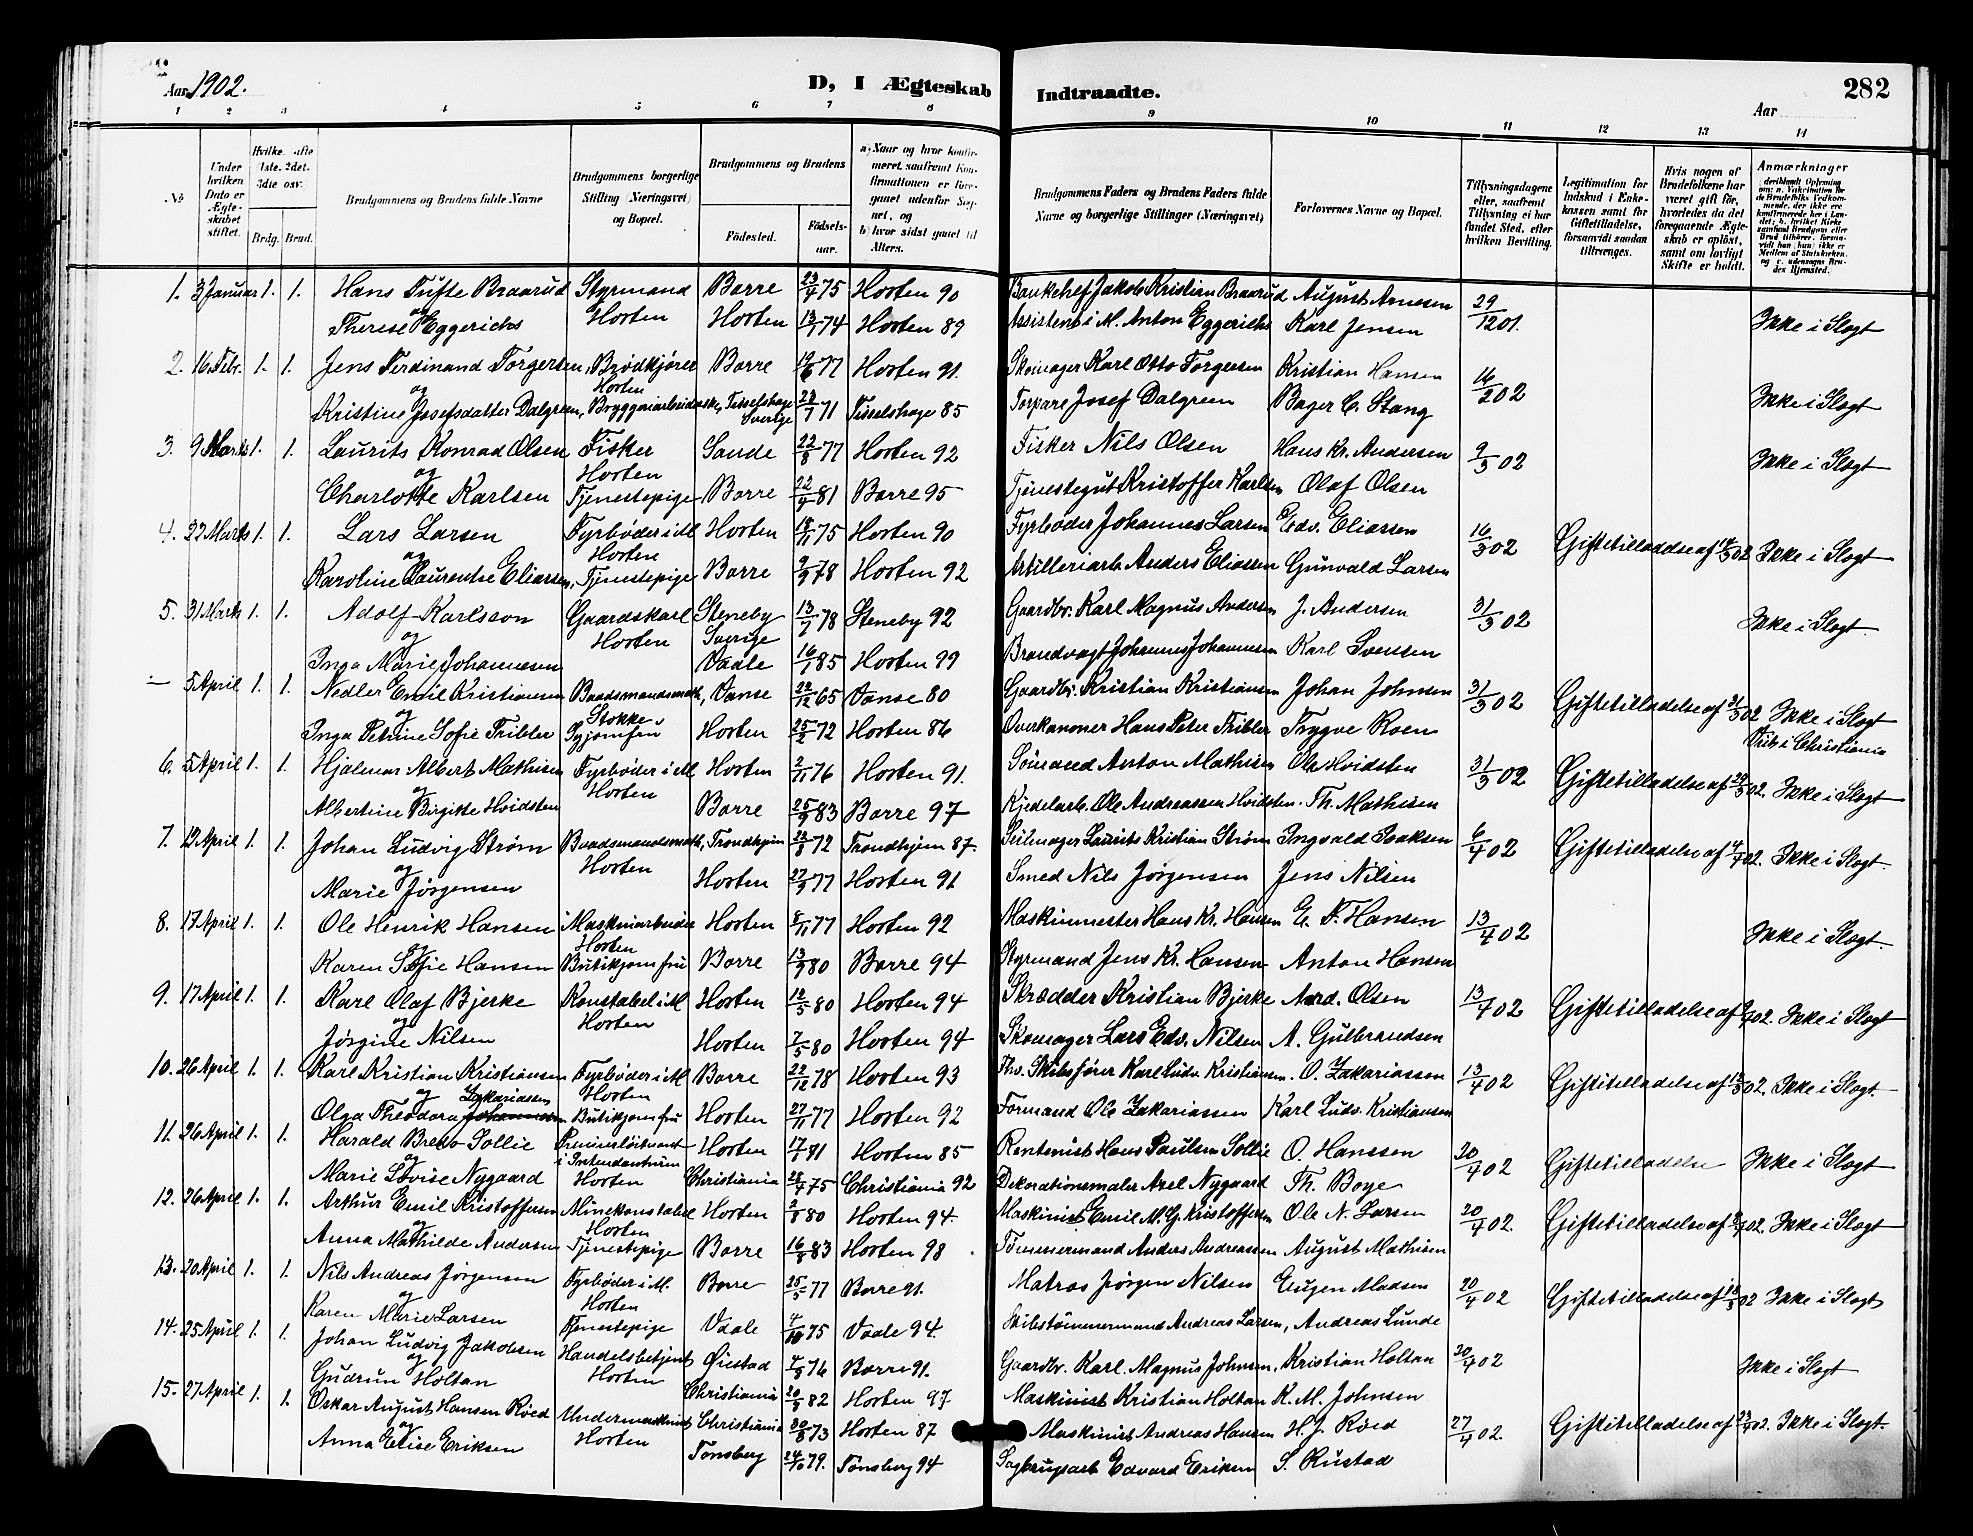 Aar 1902. D, I Ægteskab Indtraadte. Aar 282
1 2 3 4 5 6 7 8 9 10 11 12 13 14
No
Under hvilken Dato er Ægteskabet stiftet.
Brdg. Brud.
Brudgommens og Brudens fulde Navne
Brudgommens borgerlige Stilling (Næringsvei) og Bopæl.
Brudgommens og Brudens
Fødested. Fødselsaar.
a) Naar og hvor konfirmeret, saafremt Konfirmationen er foregaaet udenfor Sognet, og
b) hvor sidst gaaet til Alters.
Brudgommens Faders og Brudens Faders fulde Navne og borgerlige Stillinger (Næringsvei)
Forlovernes Navne og Bopæl.
Tillysningsdagene eller, saafremt Tillysning ei har fundet Sted, efter hvilken Bevilling.
Legitimation for Indskud i Enkekassen samt for Giftetilladelse, forsaavidt saadan tiltrænges.
Hvis nogen af Brudefolkene har været gift før, hvorledes da det foregaaende Ægteskab er opløst, samt om lovligt Skifte er holdt.
Anmærkninger
1. 3 Januar 1. 1. Hans Tufte Braarud Styrmand Borre 23/4 75 Horten 90 Bankchef Jakob Kristian Braarud August Arnesen 29/12 01. Ikke i Slegt
og Therese Eggerichs Horten Horten 13/1 74 Horten 89 Assistent i M. Anton Eggerichs Karl Jensen
2. 16 Febr. 1. 1. Jens Ferdinand Torgersen, Brødkjører Borre 77 Horten 91. Skomager Karl Otto Torgersen Kristian Hansen 16/2 02 Ikke i Slegt
og Horten
Kristine Josefsdatter Dalgren, Bryggeriarbeiderske, Tisselskoge Sverige 71 Tisselskoge 85 Torpare Josef Dalgreen Bager C. Stang
3. 9 Marts 1. 1. Laurits Konrad Olsen Fisker Sande 22/8 77 Horten 92 Fisker Nils Olsen Hans Kr. Andersen 9/3 02 Ikke i Slegt
og Horten
Charlotte Karlsen Tjenestepige Borre 81 Borre 95 Tjenestegut Kristoffer Karlsen Olaf Olsen
4. 22 Marts 1. 1. Lars Larsen Fyrbøder i M Horten 18/11 75 Horten 90 Fyrbøder Johannes Larsen Edv. Eliassen 16/3 02 Giftetilladelse af 14/3 02 Ikke i Slegt
og Horten
Karoline Laurentse Eliassen, Tjenestepige Borre 78 Horten 92 Artilleriarb. Anders Eliassen Gunvald Larsen
5. 31 Marts 1. 1. Adolf Karlsson Gaardskarl Steneby Sverige 13/7 78 Steneby 92 Gaardbr. Karl Magnus Andersen J. Andersen 31/3 02 Ikke i Slegt
og Horten
Inga Marie Johannesen Vaale 16/1 85 Horten 99 Brandvagt Johannes Johannesen Karl Svensen
– 5 April 1. 1. Nedler Emil Kristiansen Baadsmandsmath, Vanse 65 Vanse 80 Gaardbr. Kristian Kristiansen Johan Johnsen 31/3 02 Giftetilladelse af 02 Ikke i Slegt
og Stokke Viet i Christiania
Inga Petrine Sofie Tribler Syjomfru Horten 25/2 72 Horten 86 Overkanoner Hans Peter Tribler Trygve Roen
6. 5 April 1. 1. Hjalmar Albert Mathisen Fyrbøder i M Horten 2/11 76 Horten 91. Sømand Anton Mathisen Ole Hvidsten 31/3 02 Giftetilladelse af 02. Ikke i Slegt
og Horten
Albertine Birgitte Hvidsten Borre 83 Borre 97 Kjedelarb. Ole Andreassen Hvidsten. Th. Mathisen
7. 12 April 1. 1. Johan Ludvig Strøm Baadsmandsmath, Trondhjem 72 Trondhjem 87. Laurits Kristian Strøm Ingvald Isaksen 6/4 02 Giftetilladelse af 4/4 02. Ikke i Slegt.
og Horten
Marie Jørgensen Horten 77 Horten 91 Smed Nils Jørgensen Jens Nilsen
8. 17 April 1. 1. Ole Henrik Hansen Maskinarbeider Horten 8/11 77 Horten 92 Maskinmester Hans Kr. Hansen E. F. Hansen 13/4 02 Ikke i Slegt.
og Horten
Karen Sofie Hansen Butikjomfru Borre 80 Borre 94 Styrmand Jens Kr. Hansen Anton Hansen
9. 17 April 1. 1. Karl Olaf Bjerke Konstabel i M Horten 80 Horten 94 Skrædder Kristian Bjerke Olsen 13/4 02 Giftetilladelse af 02. Ikke i Slegt
og Horten
Jørgine Nilsen Horten 7/5 80 Horten 94 Skomager Lars Edv. Nilsen A. Gulbrandsen
10. 26 April 1. 1. Karl Kristian Kristiansen Fyrbøder i M Borre 22/12 78 Horten 93 Fhv. Skibsfører Karl Ludv. Kristiansen. O. Zakariassen 13/4 02 Giftetilladelse af 02. Ikke i Slegt.
og Zakariassen Horten
Olga Theodora Johannesen Butikjomfru Horten 27/11 77 Horten 92 Formand Ole Zakariassen Karl Ludv. Kristiansen
11. 26 April 1. 1. Harald Bredo Sollie Premierløitnant i Intendanturen Horten 17/1 Horten 85 Rentenist Hans Paulsen Sollie O. Hanssen 20/4 02 Giftetilladelse Ikke i Slegt
og
Marie Lovise Nygaard Horten Christiania 75 Christiania 92 Dekorationsmaler Axel Nygaard Th. Boye
12. 26 April 1. 1. Arthur Emil Kristoffersen Minekonstabel Horten 80 Horten 94. Maskinist Emil M. G. Kristoffersen Ole N. Larsen 20/4 02. Giftetilladelse af 02. Ikke i Slegt
og Horten
Anna Mathilde Andersen Tjenestepige Borre 83 Horten 98 Tømmermand Anders Andreassen August Mathisen
13. 20 April 1. 1. Nils Andreas Jørgensen Fyrbøder i M. Borre 25/5 77 Borre 91. Matros Jørgen Nilsen Eugen Madsen 20/4 02 Giftetilladelse af 02 Ikke i Slegt
og Horten
Karen Marie Larsen Tjenestepige Vaale 4/10 75 Vaale 94. Skibstømmermand Andreas Larsen, Andreas Lunde
14. 25 April 1. 1. Johan Ludvig Jakobsen Handelsbetjent Øiestad 76 Borre 91. Gaardbr. Karl Magnus Johnsen, Kristian Holtan 20/4 02 Ikke i Slegt
og Horten
Gudrun Holtan Christiania 82 Horten 97 Maskinist Kristian Holtan K. M. Johnsen
15. 27 April 1. 1. Oskar August Hansen Røed Undermaskinist Christiania 73 Horten 87 Maskinist Andreas Hansen H. J. Røed 27/4 02. Giftetilladelse af 02. Ikke i Slegt.
og Horten
Anna Elise Eriksen Tønsberg 79. Tønsberg 94 Sagbrugsarb. Edvard Eriksen S. Rustad